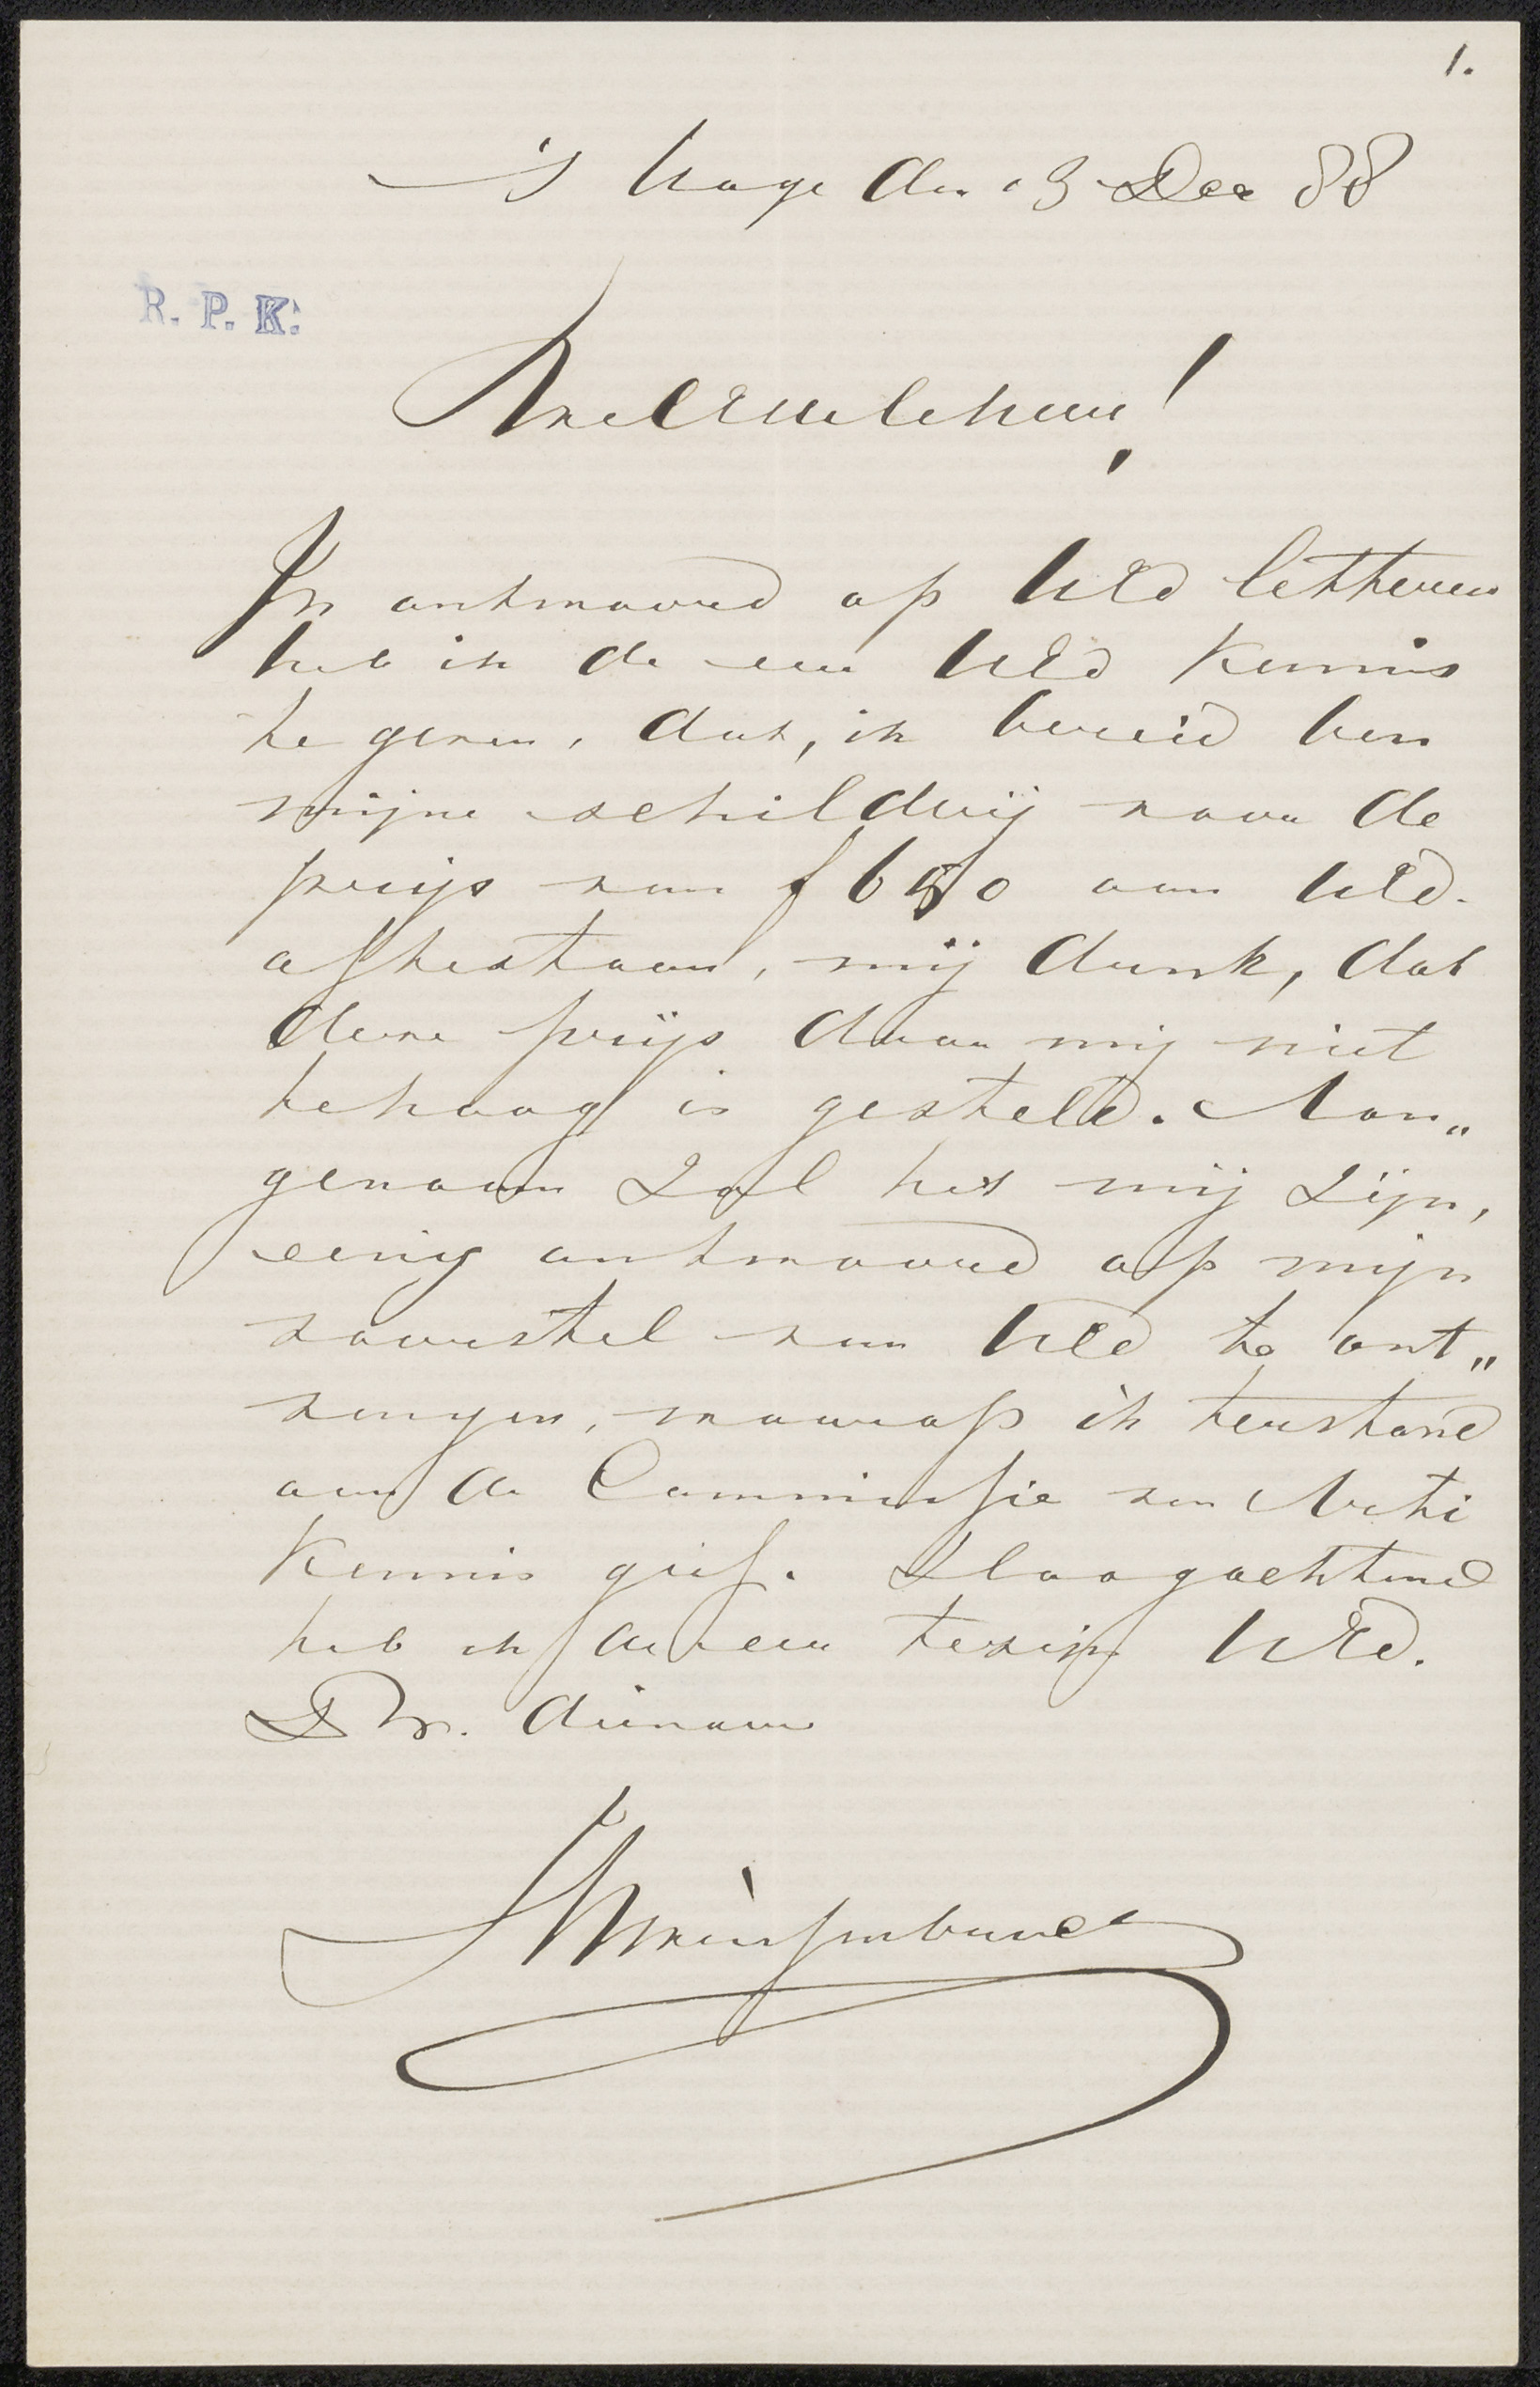 1.
's Hage den 13 Dec 88
R. P. K.
WelEdele heer!
In antwoord op UEd letteren
heb ik de eer UEd kennis
te geven, dat, ik bereid ben
mijne schilderij voor de
prijs van f 650 aan UEd.
aftestaan, mij dunk, dat
deze prijs door mij niet
te hoog is gesteld. Aan„
genaam zal het mij zijn,
eenig antwoord op mijn
voorstel van UEd te ont„
vangen, waarop ik terstond
aan de Commissie van Arti
kennis geef. Hoogachtend
heb ik de eer te zijn UEd.
D Wr. dienaar